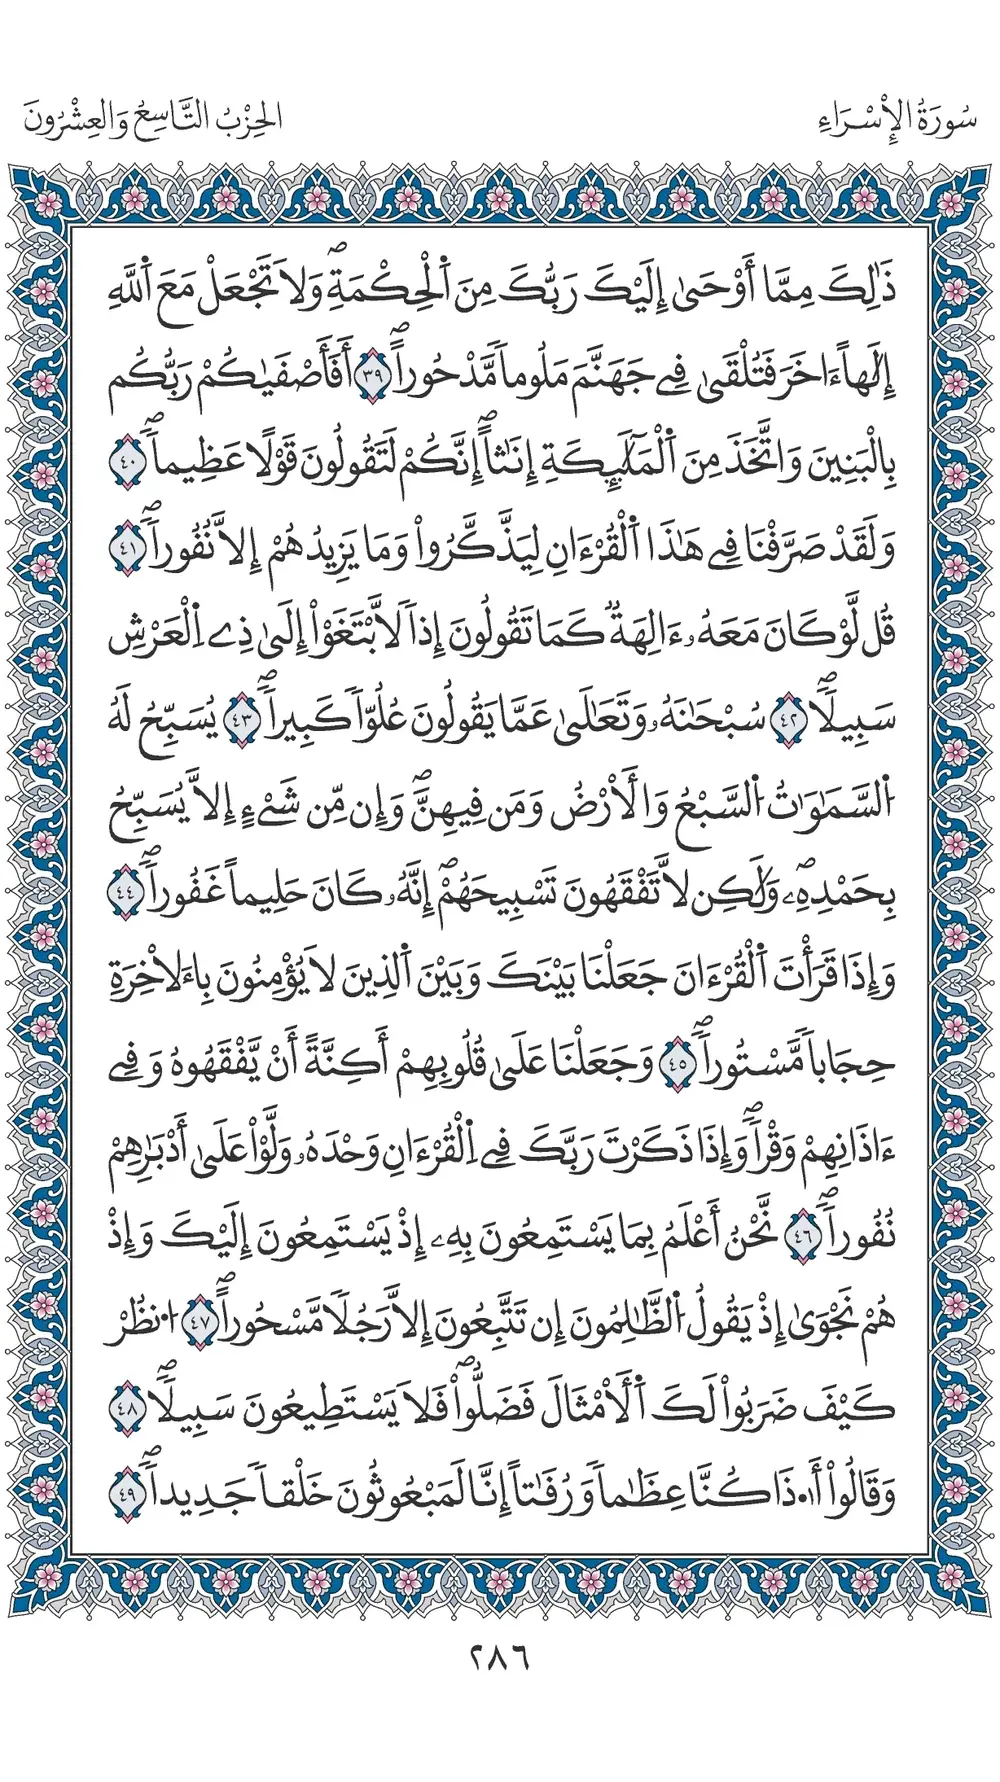 سُورَةُ الْإِسْرَاءِ
الحِزْبُ التَّاسِعُ وَالعِشْرُونَ
ذَٰلِكَ مِمَّا أَوْحَىٰ إِلَيْكَ رَبُّكَ مِنَ اَ۬لْحِكْمَةِۖ وَلَا تَجْعَلْ مَعَ اَ۬للَّهِ
إِلَٰهاً ءَاخَرَ فَتُلْقَىٰ فِے جَهَنَّمَ مَلُوماٗ مَّدْحُوراًۖ ٣٩ أَفَأَصْفَيٰكُمْ رَبُّكُم
بِالْبَنِينَ وَاتَّخَذَ مِنَ اَ۬لْمَلَٰٓئِكَةِ إِنَٰثاًۖ إِنَّكُمْ لَتَقُولُونَ قَوْلًا عَظِيماٗۖ ٤٠
وَلَقَدْ صَرَّفْنَا فِے هَٰذَا اَ۬لْقُرْءَانِ لِيَذَّكَّرُواْ وَمَا يَزِيدُهُمْ إِلَّا نُفُوراٗۖ ٤١
قُل لَّوْ كَانَ مَعَهُۥ ءَالِهَةٞ كَمَا تَقُولُونَ إِذاٗ لَّابْتَغَوْاْ إِلَىٰ ذِے اِ۬لْعَرْشِ
سَبِيلاٗۖ ٤٢ سُبْحَٰنَهُۥ وَتَعَٰلَىٰ عَمَّا يَقُولُونَ عُلُوّاٗ كَبِيراٗۖ ٤٣ يُسَبِّحُ لَهُ
اُ۬لسَّمَٰوَٰتُ اُ۬لسَّبْعُ وَالْأَرْضُ وَمَن فِيهِنَّۖ وَإِن مِّن شَےْءٍ إِلَّا يُسَبِّحُ
بِحَمْدِهِۦۖ وَلَٰكِن لَّا تَفْقَهُونَ تَسْبِيحَهُمْۖ إِنَّهُۥ كَانَ حَلِيماً غَفُوراٗۖ ٤٤
وَإِذَا قَرَأْتَ اَ۬لْقُرْءَانَ جَعَلْنَا بَيْنَكَ وَبَيْنَ اَ۬لذِينَ لَا يُؤْمِنُونَ بِالْأٓخِرَةِ
حِجَاباٗ مَّسْتُوراٗۖ ٤٥ وَجَعَلْنَا عَلَىٰ قُلُوبِهِمْ أَكِنَّةً أَنْ يَّفْقَهُوهُ وَفِے
ءَاذَانِهِمْ وَقْراٗۖ وَإِذَا ذَكَرْتَ رَبَّكَ فِے اِ۬لْقُرْءَانِ وَحْدَهُۥ وَلَّوْاْ عَلَىٰ أَدْبَٰرِهِمْ
نُفُوراٗۖ ٤٦ نَّحْنُ أَعْلَمُ بِمَا يَسْتَمِعُونَ بِهِۦ إِذْ يَسْتَمِعُونَ إِلَيْكَ وَإِذْ
هُمْ نَجْوَىٰ إِذْ يَقُولُ اُ۬لظَّٰلِمُونَ إِن تَتَّبِعُونَ إِلَّا رَجُلاٗ مَّسْحُوراًۖ ٤٧ اُ۟نظُرْ
كَيْفَ ضَرَبُواْ لَكَ اَ۬لْأَمْثَالَ فَضَلُّواْۖ فَلَا يَسْتَطِيعُونَ سَبِيلاٗۖ ٤٨
وَقَالُواْ أَ۟ذَا كُنَّا عِظَٰماٗ وَرُفَٰتاً إِنَّا لَمَبْعُوثُونَ خَلْقاٗ جَدِيداٗۖ ٤٩
٢٨٦